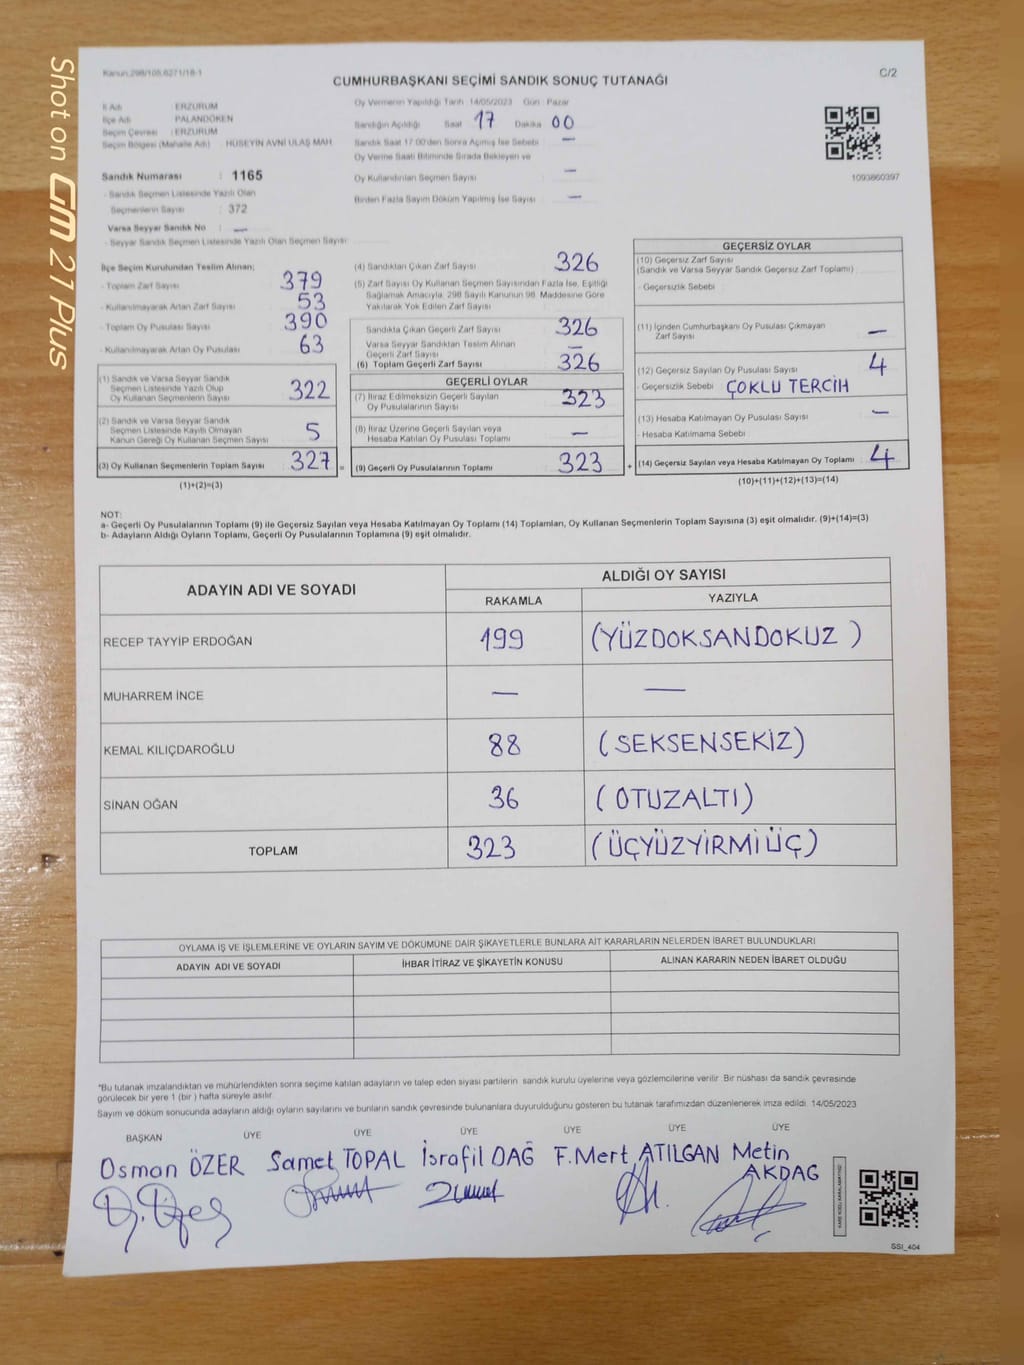 Shot on GM 21 Plus
Kanun,298/105,6271/18-1
CUMHURBAŞKANI SEÇİMİ SANDIK SONUÇ TUTANAĞI
C/2
İl Adı : ERZURUM
İlçe Adı : PALANDÖKEN
Seçim Çevresi : ERZURUM
Seçim Bölgesi (Mahalle Adı) : HÜSEYİN AVNİ ULAŞ MAH.
Sandık Numarası : 1165
- Sandık Seçmen Listesinde Yazılı Olan
Seçmenlerin Sayısı : 372
Varsa Seyyar Sandık No : —
- Seyyar Sandık Seçmen Listesinde Yazılı Olan Seçmen Sayısı
Oy Vermenin Yapıldığı Tarih 14/05/2023 Gün : Pazar
Sandığın Açıldığı Saat 17 Dakika 00
Sandık Saat 17:00'den Sonra Açılmış İse Sebebi —
Oy Verme Saati Bitiminde Sırada Bekleyen ve
Oy Kullandırılan Seçmen Sayısı —
Birden Fazla Sayım Döküm Yapılmış İse Sayısı —
1093860397
İlçe Seçim Kurulundan Teslim Alınan;
- Toplam Zarf Sayısı : 379
- Kullanılmayarak Artan Zarf Sayısı : 53
- Toplam Oy Pusulası Sayısı : 390
- Kullanılmayarak Artan Oy Pusulası : 63
(1) Sandık ve Varsa Seyyar Sandık
Seçmen Listesinde Yazılı Olup
Oy Kullanan Seçmenlerin Sayısı : 322
(2) Sandık ve Varsa Seyyar Sandık
Seçmen Listesinde Kayıtlı Olmayan
Kanun Gereği Oy Kullanan Seçmen Sayısı : 5
(3) Oy Kullanan Seçmenlerin Toplam Sayısı : 327 =
(1)+(2)=(3)
(4) Sandıktan Çıkan Zarf Sayısı : 326
(5) Zarf Sayısı Oy Kullanan Seçmen Sayısından Fazla İse, Eşitliği
Sağlamak Amacıyla, 298 Sayılı Kanunun 98. Maddesine Göre
Yakılarak Yok Edilen Zarf Sayısı :
Sandıkta Çıkan Geçerli Zarf Sayısı : 326
Varsa Seyyar Sandıktan Teslim Alınan
Geçerli Zarf Sayısı : —
(6) Toplam Geçerli Zarf Sayısı : 326
GEÇERLİ OYLAR
(7) İtiraz Edilmeksizin Geçerli Sayılan
Oy Pusulalarının Sayısı : 323
(8) İtiraz Üzerine Geçerli Sayılan veya
Hesaba Katılan Oy Pusulası Toplamı : —
(9) Geçerli Oy Pusulalarının Toplamı : 323 +
GEÇERSİZ OYLAR
(10) Geçersiz Zarf Sayısı
(Sandık ve Varsa Seyyar Sandık Geçersiz Zarf Toplamı) :
- Geçersizlik Sebebi :
(11) İçinden Cumhurbaşkanı Oy Pusulası Çıkmayan
Zarf Sayısı : —
(12) Geçersiz Sayılan Oy Pusulası Sayısı : 4
- Geçersizlik Sebebi : ÇOKLU TERCİH
(13) Hesaba Katılmayan Oy Pusulası Sayısı : —
- Hesaba Katılmama Sebebi :
(14) Geçersiz Sayılan veya Hesaba Katılmayan Oy Toplamı : 4
(10)+(11)+(12)+(13)=(14)
NOT:
a- Geçerli Oy Pusulalarının Toplamı (9) ile Geçersiz Sayılan veya Hesaba Katılmayan Oy Toplamı (14) Toplamları, Oy Kullanan Seçmenlerin Toplam Sayısına (3) eşit olmalıdır. (9)+(14)=(3)
b- Adayların Aldığı Oyların Toplamı, Geçerli Oy Pusulalarının Toplamına (9) eşit olmalıdır.
ADAYIN ADI VE SOYADI
ALDIĞI OY SAYISI
RAKAMLA YAZIYLA
RECEP TAYYİP ERDOĞAN 199 (YÜZDOKSANDOKUZ )
MUHARREM İNCE — —
KEMAL KILIÇDAROĞLU 88 (SEKSENSEKİZ)
SİNAN OĞAN 36 (OTUZALTI)
TOPLAM 323 (ÜÇYÜZYİRMİÜÇ)
OYLAMA İŞ VE İŞLEMLERİNE VE OYLARIN SAYIM VE DÖKÜMÜNE DAİR ŞİKAYETLERLE BUNLARA AİT KARARLARIN NELERDEN İBARET BULUNDUKLARI
ADAYIN ADI VE SOYADI İHBAR İTİRAZ VE ŞİKAYETİN KONUSU ALINAN KARARIN NEDEN İBARET OLDUĞU
*Bu tutanak imzalandıktan ve mühürlendikten sonra seçime katılan adayların ve talep eden siyasi partilerin sandık kurulu üyelerine veya gözlemcilerine verilir. Bir nüshası da sandık çevresinde
görülecek bir yere 1 (bir ) hafta süreyle asılır.
Sayım ve döküm sonucunda adayların aldığı oyların sayılarını ve bunların sandık çevresinde bulunanlara duyurulduğunu gösteren bu tutanak tarafımızdan düzenlenerek imza edildi. 14/05/2023
BAŞKAN ÜYE ÜYE ÜYE ÜYE ÜYE ÜYE
Osman ÖZER Samet TOPAL İsrafil DAĞ F.Mert ATILGAN Metin
AKDAG
SSI_404